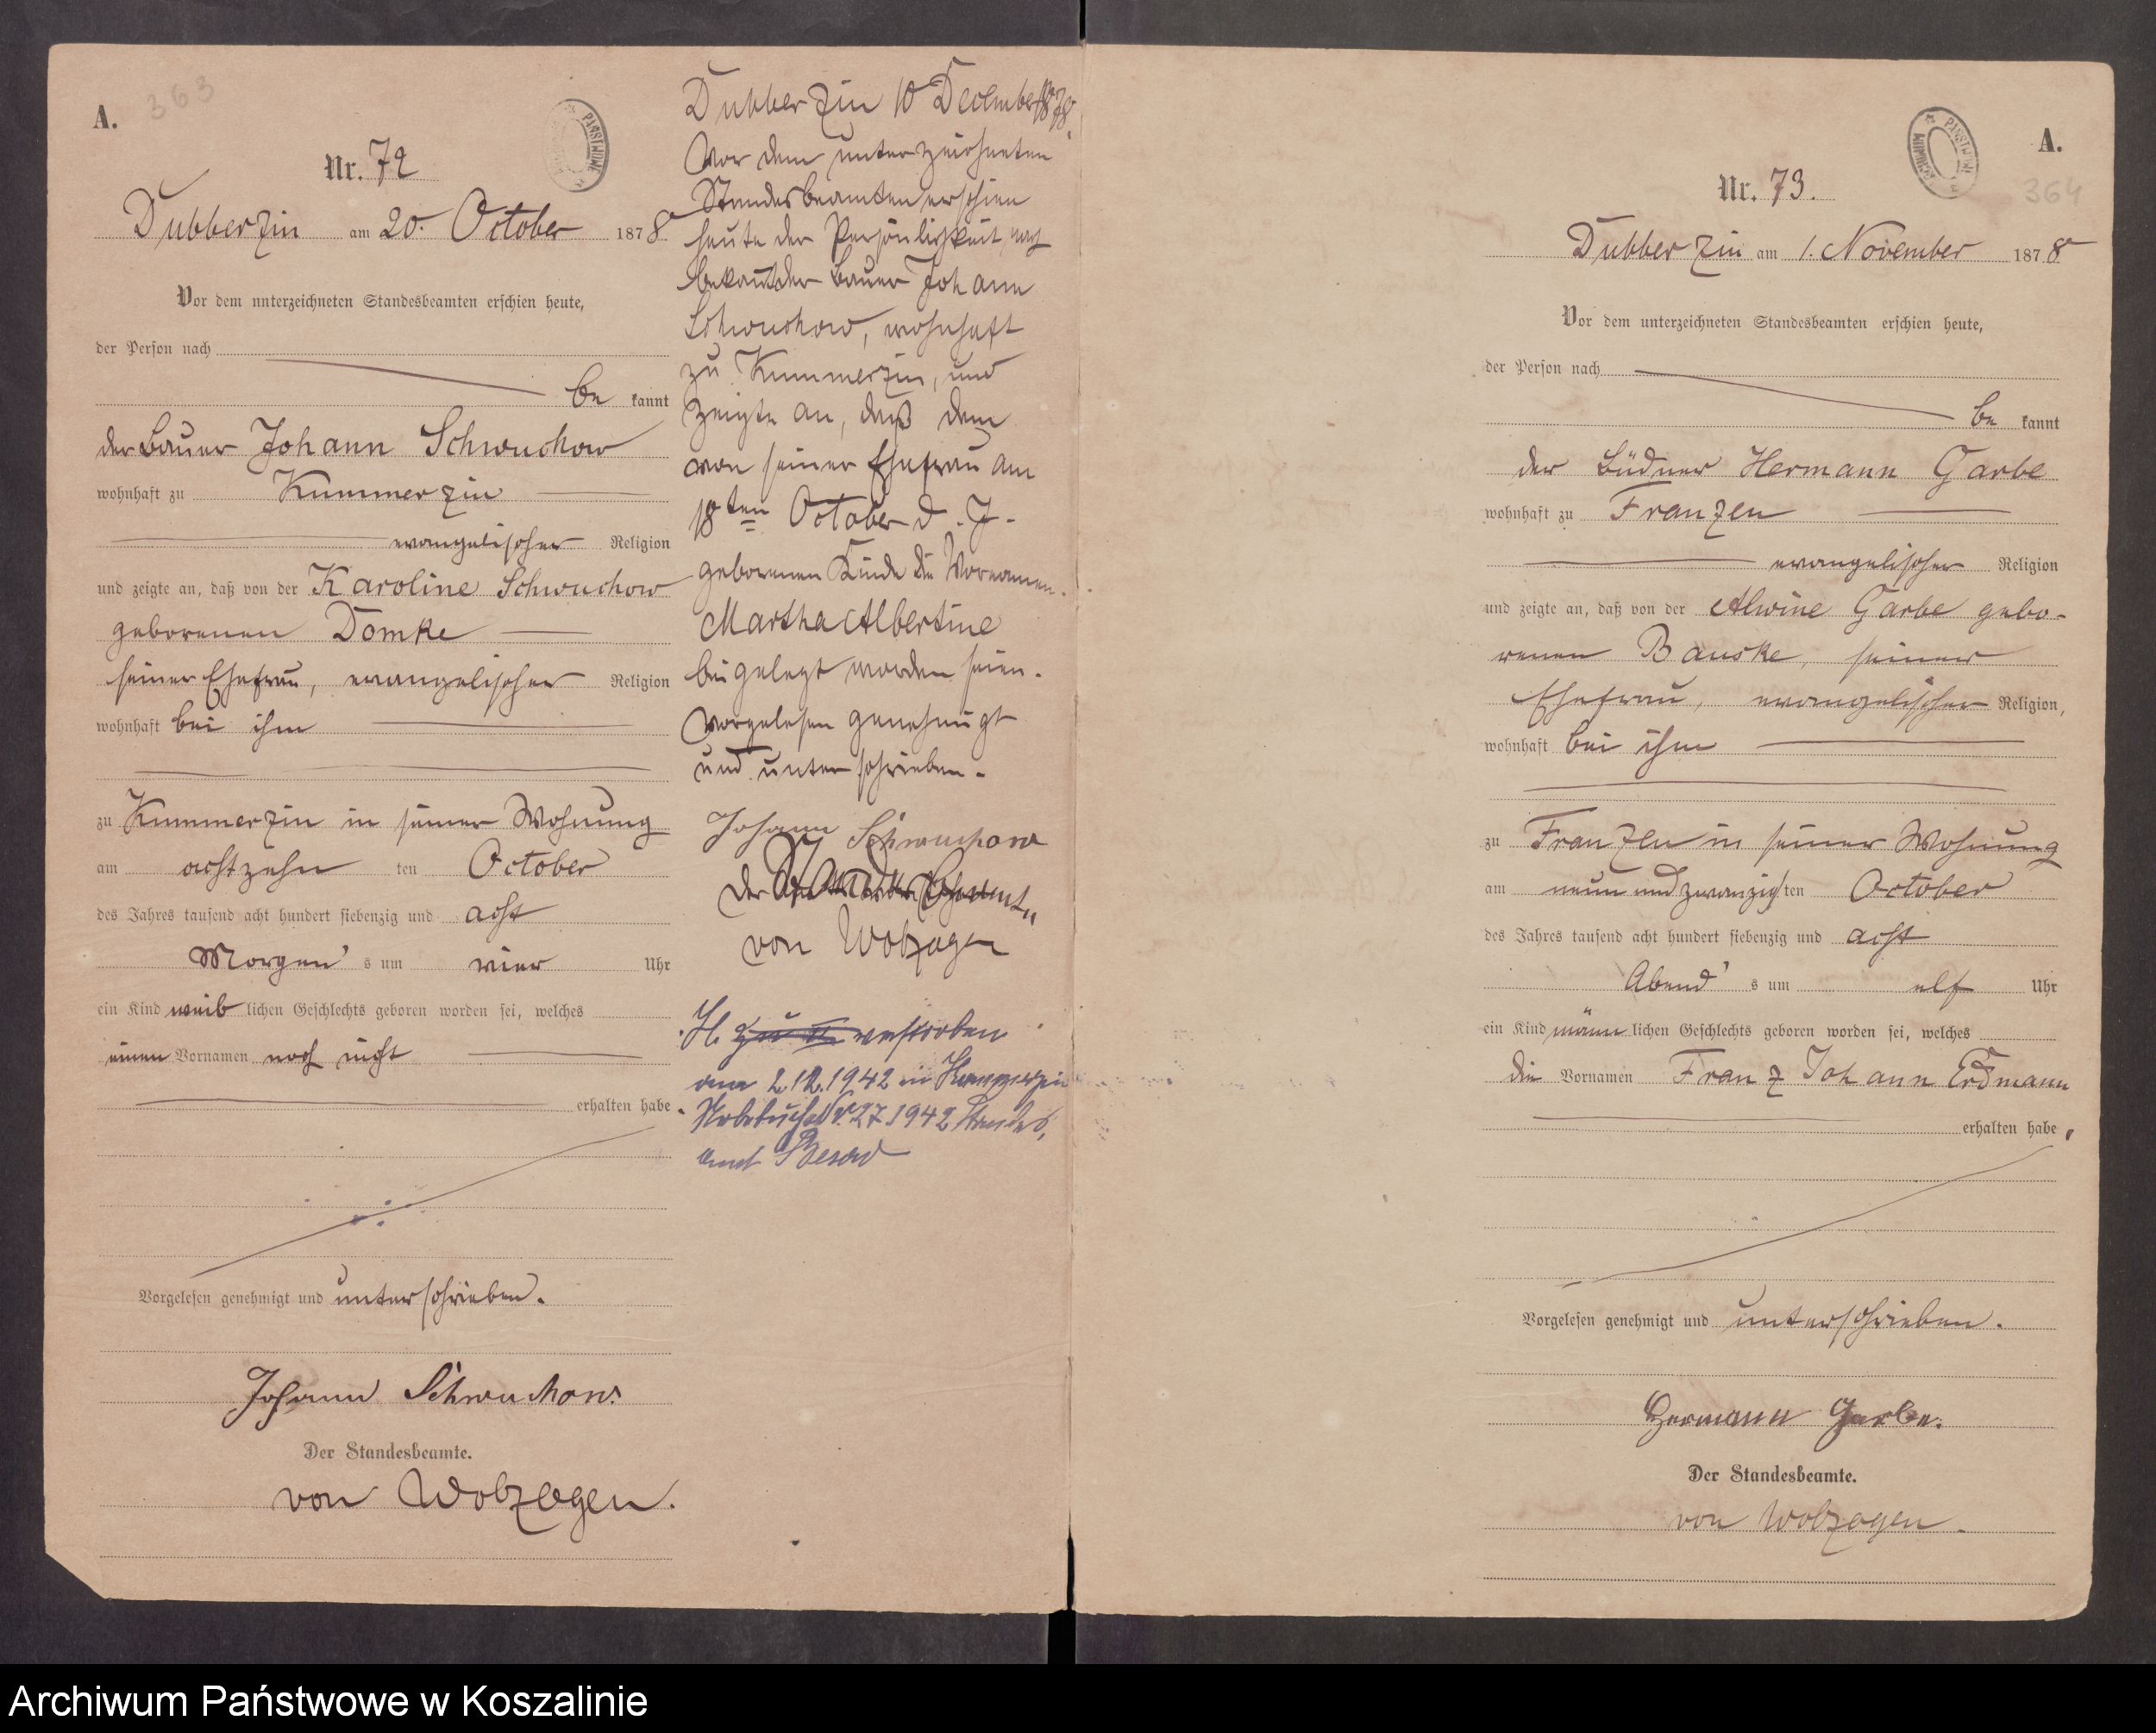 A.
363
Nr. 72
Dubberzin am 20. October 1878
Vor dem unterzeichneten Standesbeamten erschien heute,
der Person nach
be kannt
der Bauer Johann Schwuchow
wohnhaft zu Kummerzin
evangelischer Religion
und zeigte an, daß von der Karoline Schwuchow
geborenen Domke
seiner Ehefrau, evangelischer Religion
wohnhaft bei ihm
zu Kummerzin in seiner Wohnung
am achtzehn ten October
des Jahres tausend acht hundert siebenzig und acht
Morgen's um vier Uhr
ein Kind weiblichen Geschlechts geboren worden sei, welches
einen Vornamen noch nicht
erhalten habe.
Vorgelesen genehmigt und unterschrieben.
Johann Schwuchow.
Der Standesbeamte.
von Wobzogen.
Dubberzin 10 December 1878
Vor dem unterzeichneten
Standesbeamten erschien
heute der Persönlichkeit nach
bekannt der Bauer Johann
Schwuchow, wohnhaft
zu Kummerzin, und
zeigte an, daß dem
von seiner Ehefrau am
18ten October d. J.
geborenen Kinde die Vornamen
Martha Albertine
beigelegt worden seien.
Vorgelesen genehmigt
und unterschrieben.
Johann Schwuchow
Der Standesbeamte
von Wobzogen
verstorben
am 2.12.1942 in Kummerzin
Nr. 27 1942 Standes,
amt
A.
364
Nr. 73.
Dubberzin am 1. November 1878
Vor dem unterzeichneten Standesbeamten erschien heute,
der Person nach
be kannt
der Büdner Hermann Garbe
wohnhaft zu Franzen
evangelischer Religion
und zeigte an, daß von der Alwine Garbe gebo-
renen Bauske, seiner
Ehefrau, evangelischer Religion,
wohnhaft bei ihm
zu Franzen in seiner Wohnung
am neun und zwanzigsten October
des Jahres tausend acht hundert siebenzig und acht
Abend's um elf Uhr
ein Kind männlichen Geschlechts geboren worden sei, welches
die Vornamen Franz Johann Erdmann
erhalten habe.
Vorgelesen genehmigt und unterschrieben.
Hermann Garbe.
Der Standesbeamte.
von Wobzogen.
Archiwum Państwowe w Koszalinie